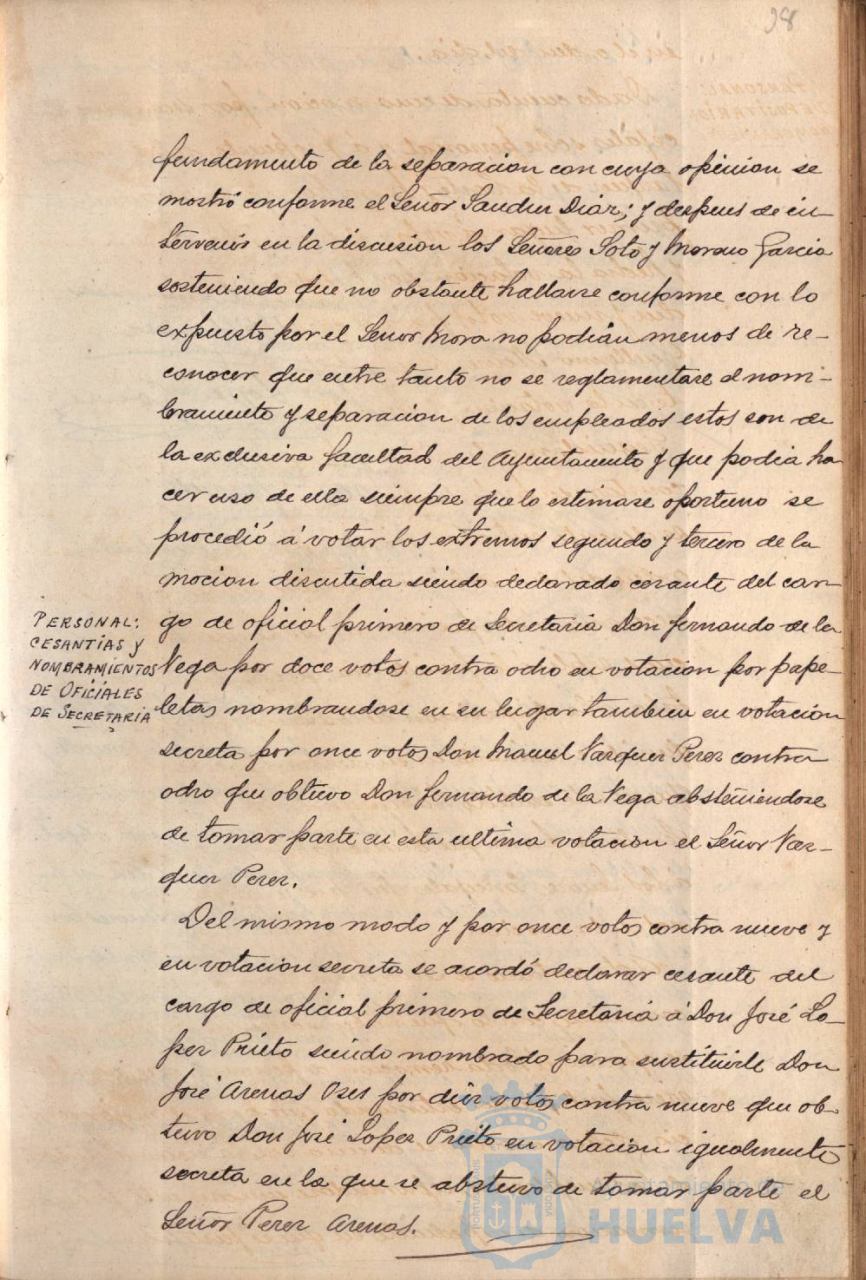 98
fundamento de la separacion con cuya opinion se
mostró conforme el Señor Sanchez Diaz; y despues de in-
tervenir en la discusion los Señores Soto y Moreno Garcia
sosteniendo que no obstante hallarse conforme con lo
expuesto por el Señor Mora no podian menos de re-
conocer que entre tanto no se reglamentase el nom-
bramiento y separacion de los empleados estos son de
la exclusiva facultad del Ayuntamiento y que podia ha
cer uso de ella siempre que lo estimase oportuno se
procedió á votar los extremos segundo y tercero de la
mocion discutida siendo declarado cesante del car-
go de oficial primero de Secretaria Don Fernando de la
Vega por doce votos contra ocho en votacion por pape-
letas nombrandose en su lugar tambien en votacion
secreta por once votos Don Manuel Vazquez Perez contra
ocho que obtuvo Don Fernando de la Vega absteniendose
de tomar parte en esta ultima votacion el Señor Vaz-
quez Perez.
PERSONAL:
CESANTÍAS Y
NOMBRAMIENTOS
DE OFICIALES
DE SECRETARIA
Del mismo modo y por once votos contra nueve y
en votacion secreta se acordó declarar cesante del
cargo de oficial primero de Secretaria á Don José Lo-
pez Prieto siendo nombrado para sustituirle Don
José Arenas Oses por diez votos contra nueve que ob-
tuvo Don José Lopez Prieto en votacion igualmente
secreta en la que se abstuvo de tomar parte el
Señor Perez Arenas.
HUELVA